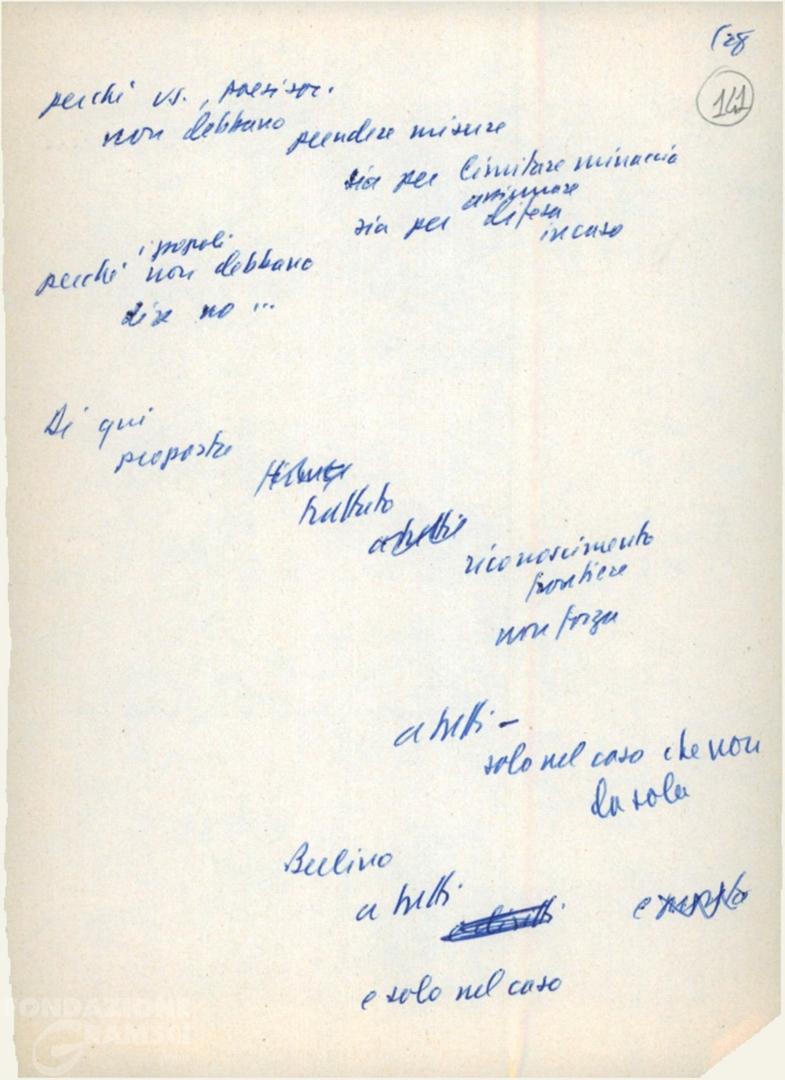 (28
141
perché vs., paesi soc.
non debbano prendere misure
sia per limitare minaccia
assicurare
sia per difesa
in caso
i popoli
perché non debbano
dire no ...
Di qui
proposte
trattato
a tutti
riconoscimento
frontiere
non forza
a tutti -
solo nel caso che non
da sola
Berlino
a tutti
e solo nel caso
FONDAZIONE
GRAMSCI